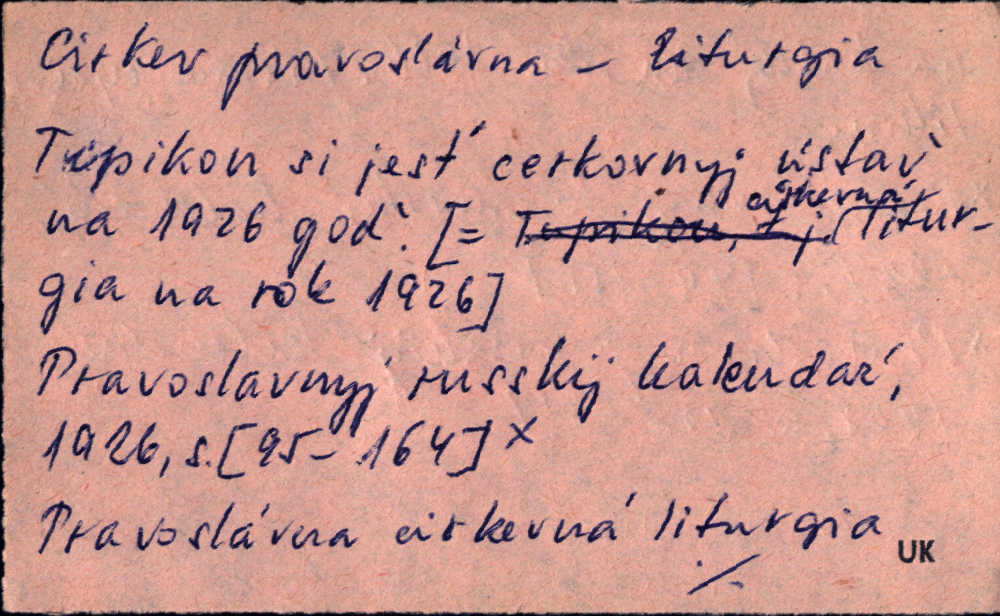 Cirkev pravoslávna – liturgia
Tipikon si jesť cerkovnyj ustav
na 1926 god. [= Tipikon, t. j. cirkevná litur-
gia na rok 1926]
Pravoslavnyj russkij kalendaŕ,
1926, s. [95–164] x
Pravoslávna cirkevná liturgia
UK